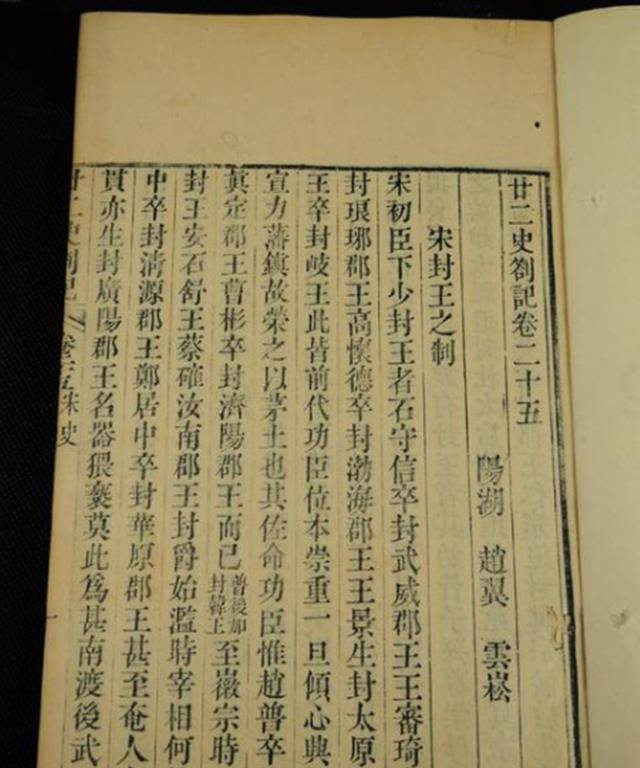 廿二史劄記卷二十五
陽湖 趙翼 雲崧
宋封王之制
宋初臣下少封王者石守信卒封武威郡王王審琦
封琅琊郡王高懷德卒封渤海郡王王景生封太原
王卒封岐王此皆前代功臣位本崇重一旦傾心與
宣力藩鎮故榮之以茅土也其佐命功臣惟趙普卒
真定郡王曹彬卒封濟陽郡王而已普後加封韓王至徽宗時
封王安石舒王蔡確汝南郡王封爵始濫時宰相何
中卒封清源郡王鄭居中卒封華原郡王甚至奄人
貫亦生封廣陽郡王名器猥褻莫此爲甚南渡後武
廿二史劄記 卷二五 宋史